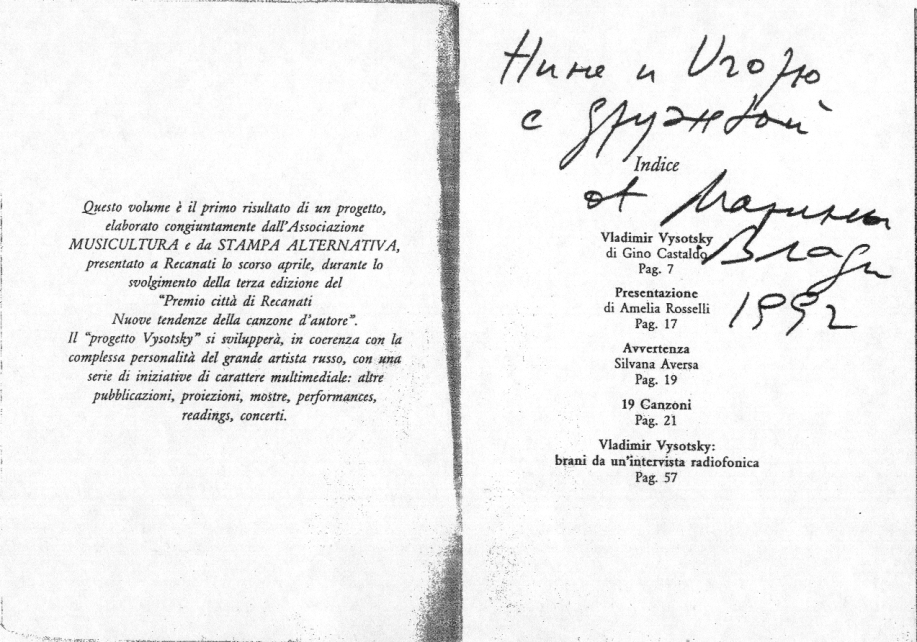 Questo volume è il primo risultato di un progetto,
elaborato congiuntamente dall'Associazione
MUSICULTURA e da STAMPA ALTERNATIVA,
presentato a Recanati lo scorso aprile, durante lo
svolgimento della terza edizione del
“Premio città di Recanati
Nuove tendenze della canzone d'autore”.
Il “progetto Vysotsky” si svilupperà, in coerenza con la
complessa personalità del grande artista russo, con una
serie di iniziative di carattere multimediale: altre
pubblicazioni, proiezioni, mostre, performances,
readings, concerti.
Нине и Игорю
с дружбой
Indice
от Марины
Влади
1992
Vladimir Vysotsky
di Gino Castaldo
Pag. 7
Presentazione
di Amelia Rosselli
Pag. 17
Avvertenza
Silvana Aversa
Pag. 19
19 Canzoni
Pag. 21
Vladimir Vysotsky:
brani da un'intervista radiofonica
Pag. 57